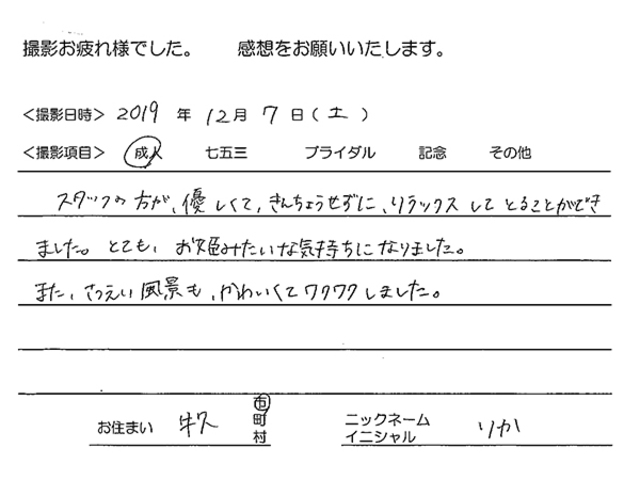 撮影お疲れ様でした。　感想をお願いいたします。
＜撮影日時＞ 2019 年 12月 7 日（土）
＜撮影項目＞ 成人　七五三　ブライダル　記念　その他
スタッフの方が、優しくて、きんちょうせずに、リラックスしてとることができ
ました。とても、お姫みたいな気持ちになりました。
また、さつえい風景も、かわいくてワクワクしました。
お住まい 牛久 市町村　ニックネーム イニシャル りか